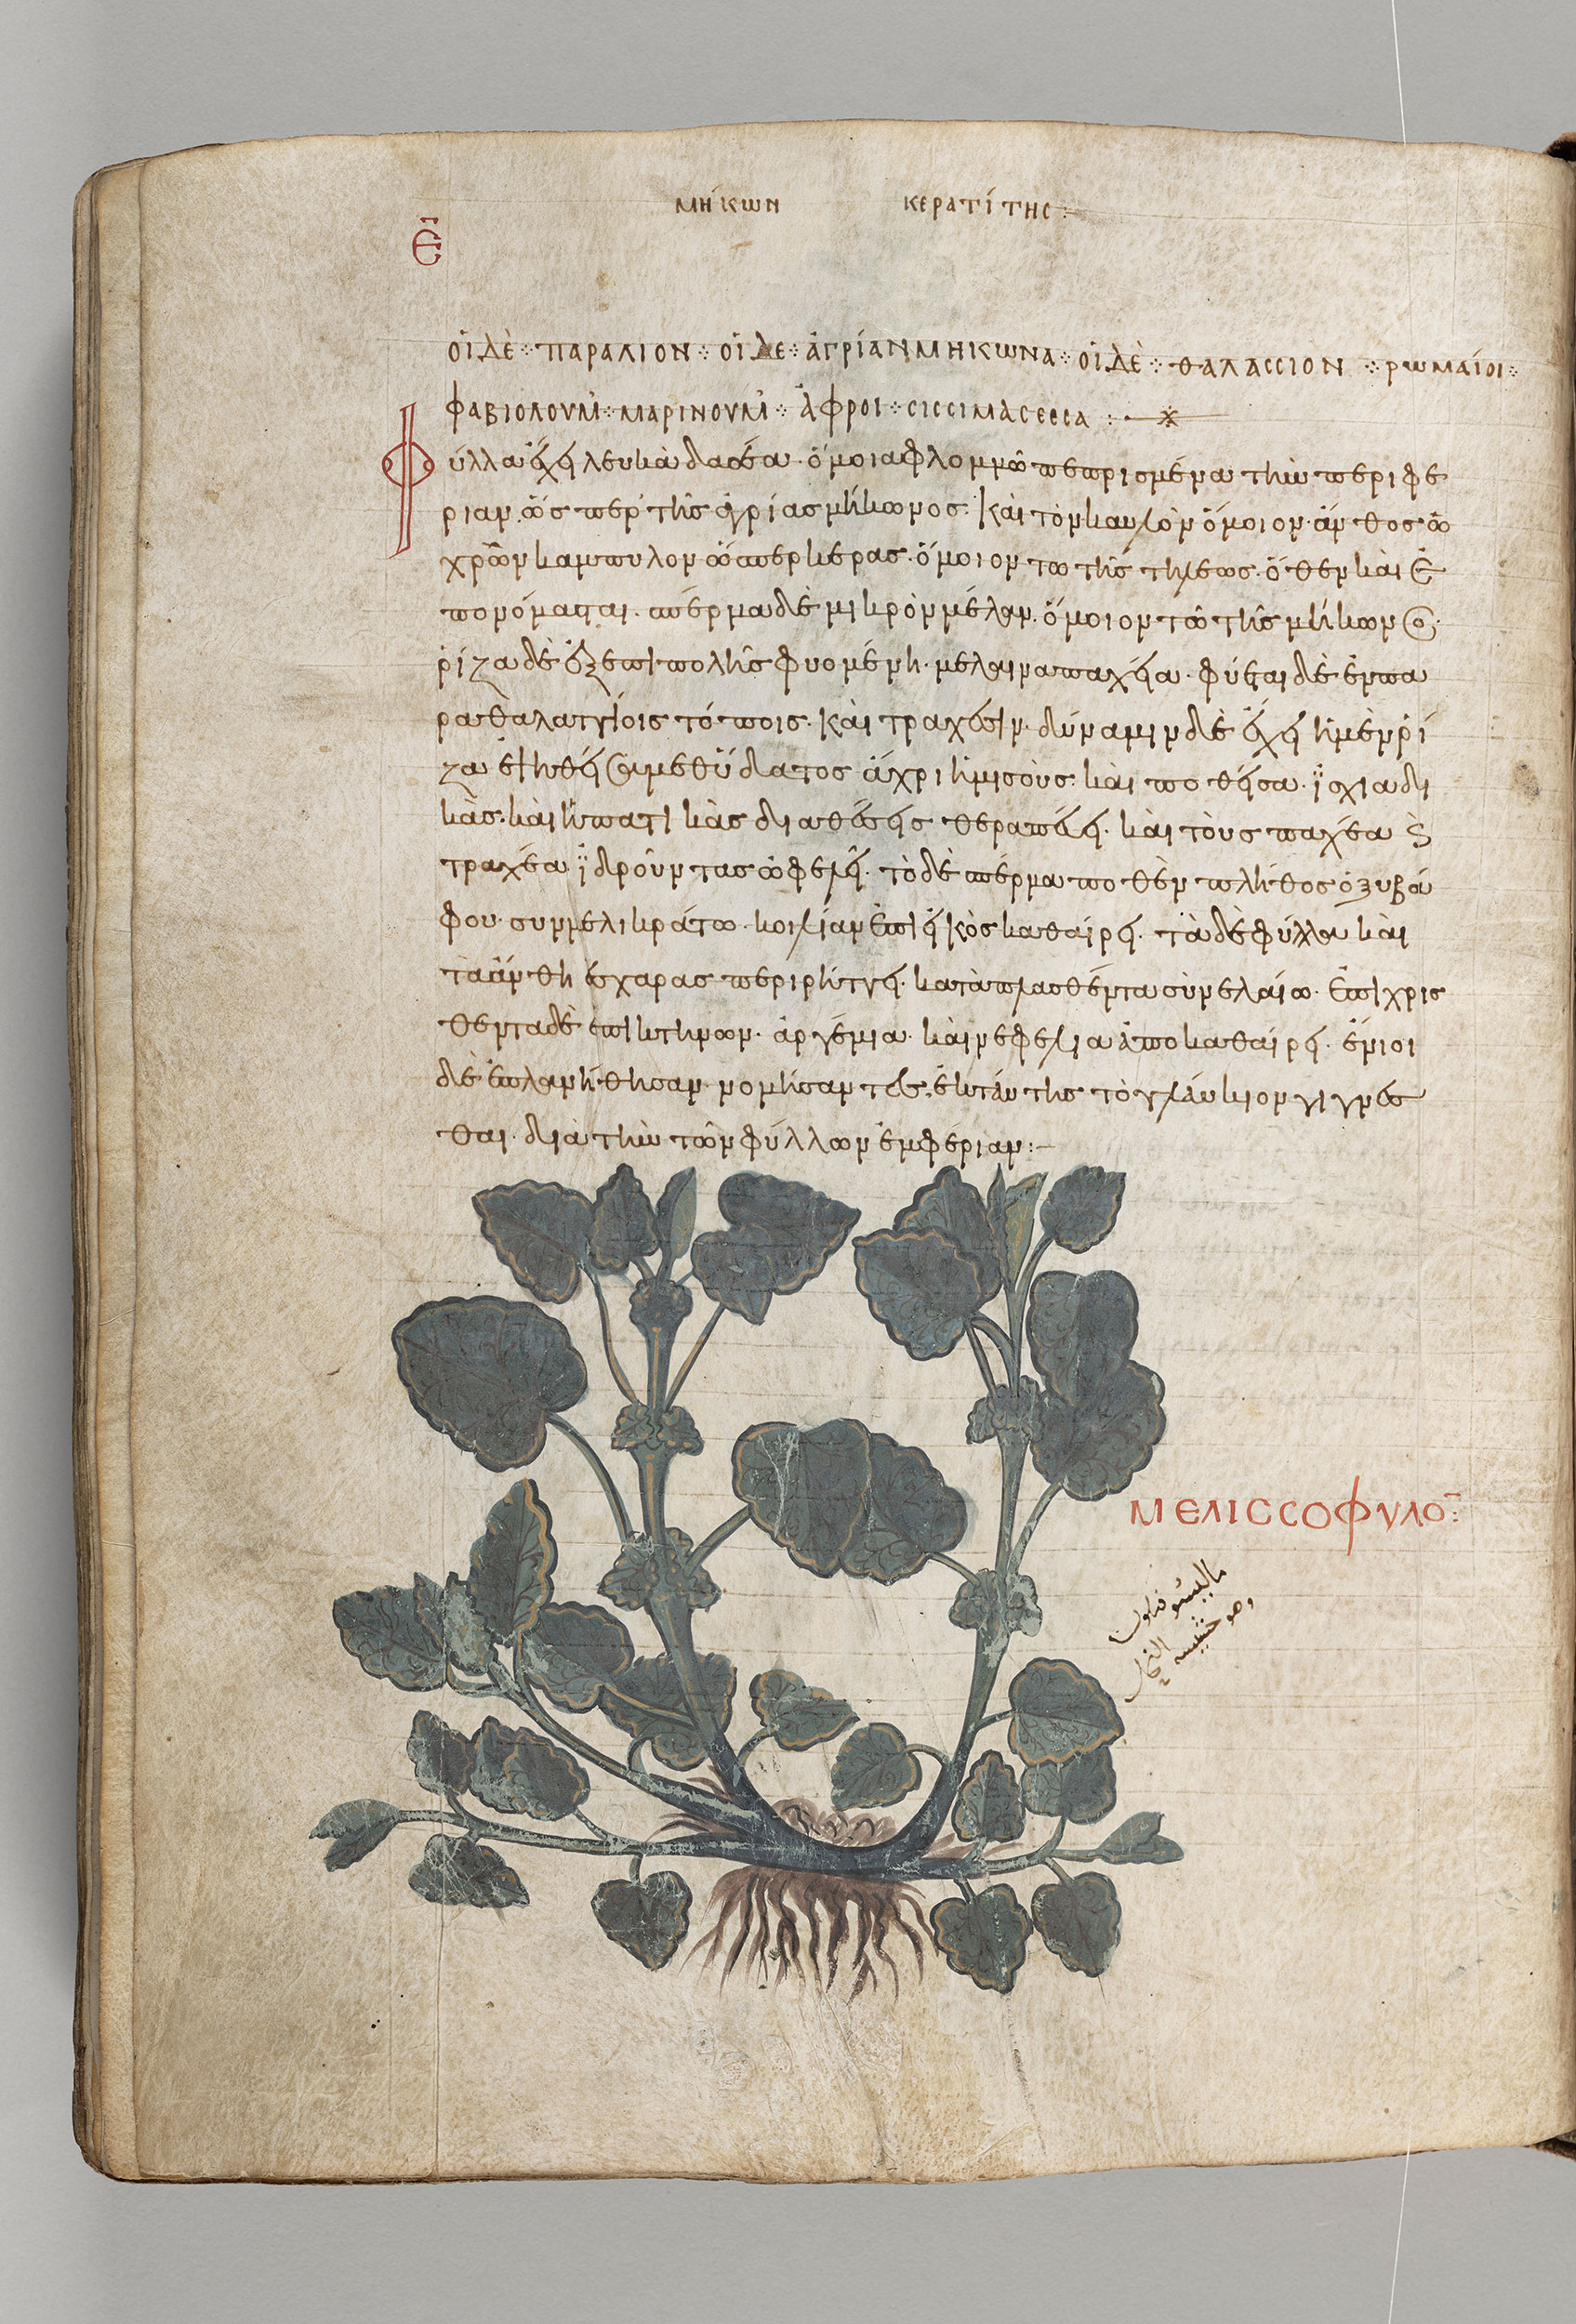 ΜΉΚΩΝ ΚΕΡΑΤΊΤΗC :
Ε̄
ΟἹ ΔῈ ⁘ ΠΑΡΑΛΙΟΝ ⁘ ΟἹ ΔΕ ⁘ ἈΓΡΊΑΝ ΜΗΚΩΝΑ ⁘ ΟἹ ΔῈ ⁘ ΘΑΛΑCCΙΟΝ ⁘ ΡΩΜΑΊΟΙ ⁘
ΦΑΒΙΟΛΟΥΜ ⁘ ΜΑΡΙΝΟΥΜ ⁘ ἌΦΡΟΙ ⁘ CΙCCΙΜΑCΕCCΑ :
Φύλλα ἔχει λευκὰ δασέα· ὅμοια φλομμῶ πεπρισμένα τὴν περιφέ
ριαν. ὥσπερ τῆς ἀγρίας μήκωνος. Καὶ τὸν καυλὸν ὅμοιον· ἄνθος ὠ
χρὸν καμπυλον ὥσπερ κερας· ὅμοιον τω τῆς τήλεως. ὅθεν καὶ ἐ
πονόμασται. σπέρμα δὲ μικρὸν μέλαν. ὅμοιον τῶ τῆς μήκωνος.
ῥίζα δὲ ἐξ ἐπιπολῆς φυομένη· μέλαινα παχεῖα· φύεται δὲ ἐν πα
ραθαλαττίοις τόποις· Καὶ τραχέσιν. δύναμιν δὲ ἔχει ἡ μὲν ῥί
ζα ἑψηθεῖσα μεθ ὕδατος ἄχρι ἡμισοὺς. καὶ ποθεῖσα· ἰσχιαδι
κὰς· καὶ ἡπατικὰς διαθέσεις θεραπεύει. καὶ τοὺς παχέα ϗ
τραχέα ἰδροῦντας ὠφελεῖ. τὸ δὲ σπέρμα ποθὲν πλῆθος ὀξυβά
φου· συν μελικράτω· κοιλίαν ἐπιεικὸς καθαίρει. τὰ δὲ φύλλα καὶ
τὰ ἄνθη ἐσχαρας περιρήττει. καταπλασθέντα σὺν ελαίω· Ἐπιχρισ
θεντα δὲ ἐπι κτηνων· ἀργέμια· καὶ νεφελια ἀποκαθαίρει. ἔνιοι
δὲ ἐπλανήθησαν· νομήσαντες. ἐκ τάυτης τὸ γλάυκιον γίγνεσ
θαι· διὰ τὴν τῶν φύλλων ἐμφέριαν :—
ΜΕΛΙCCΟΦΥΛΟ̄ :
مالیسوفلون
وهو حشیشه النحل